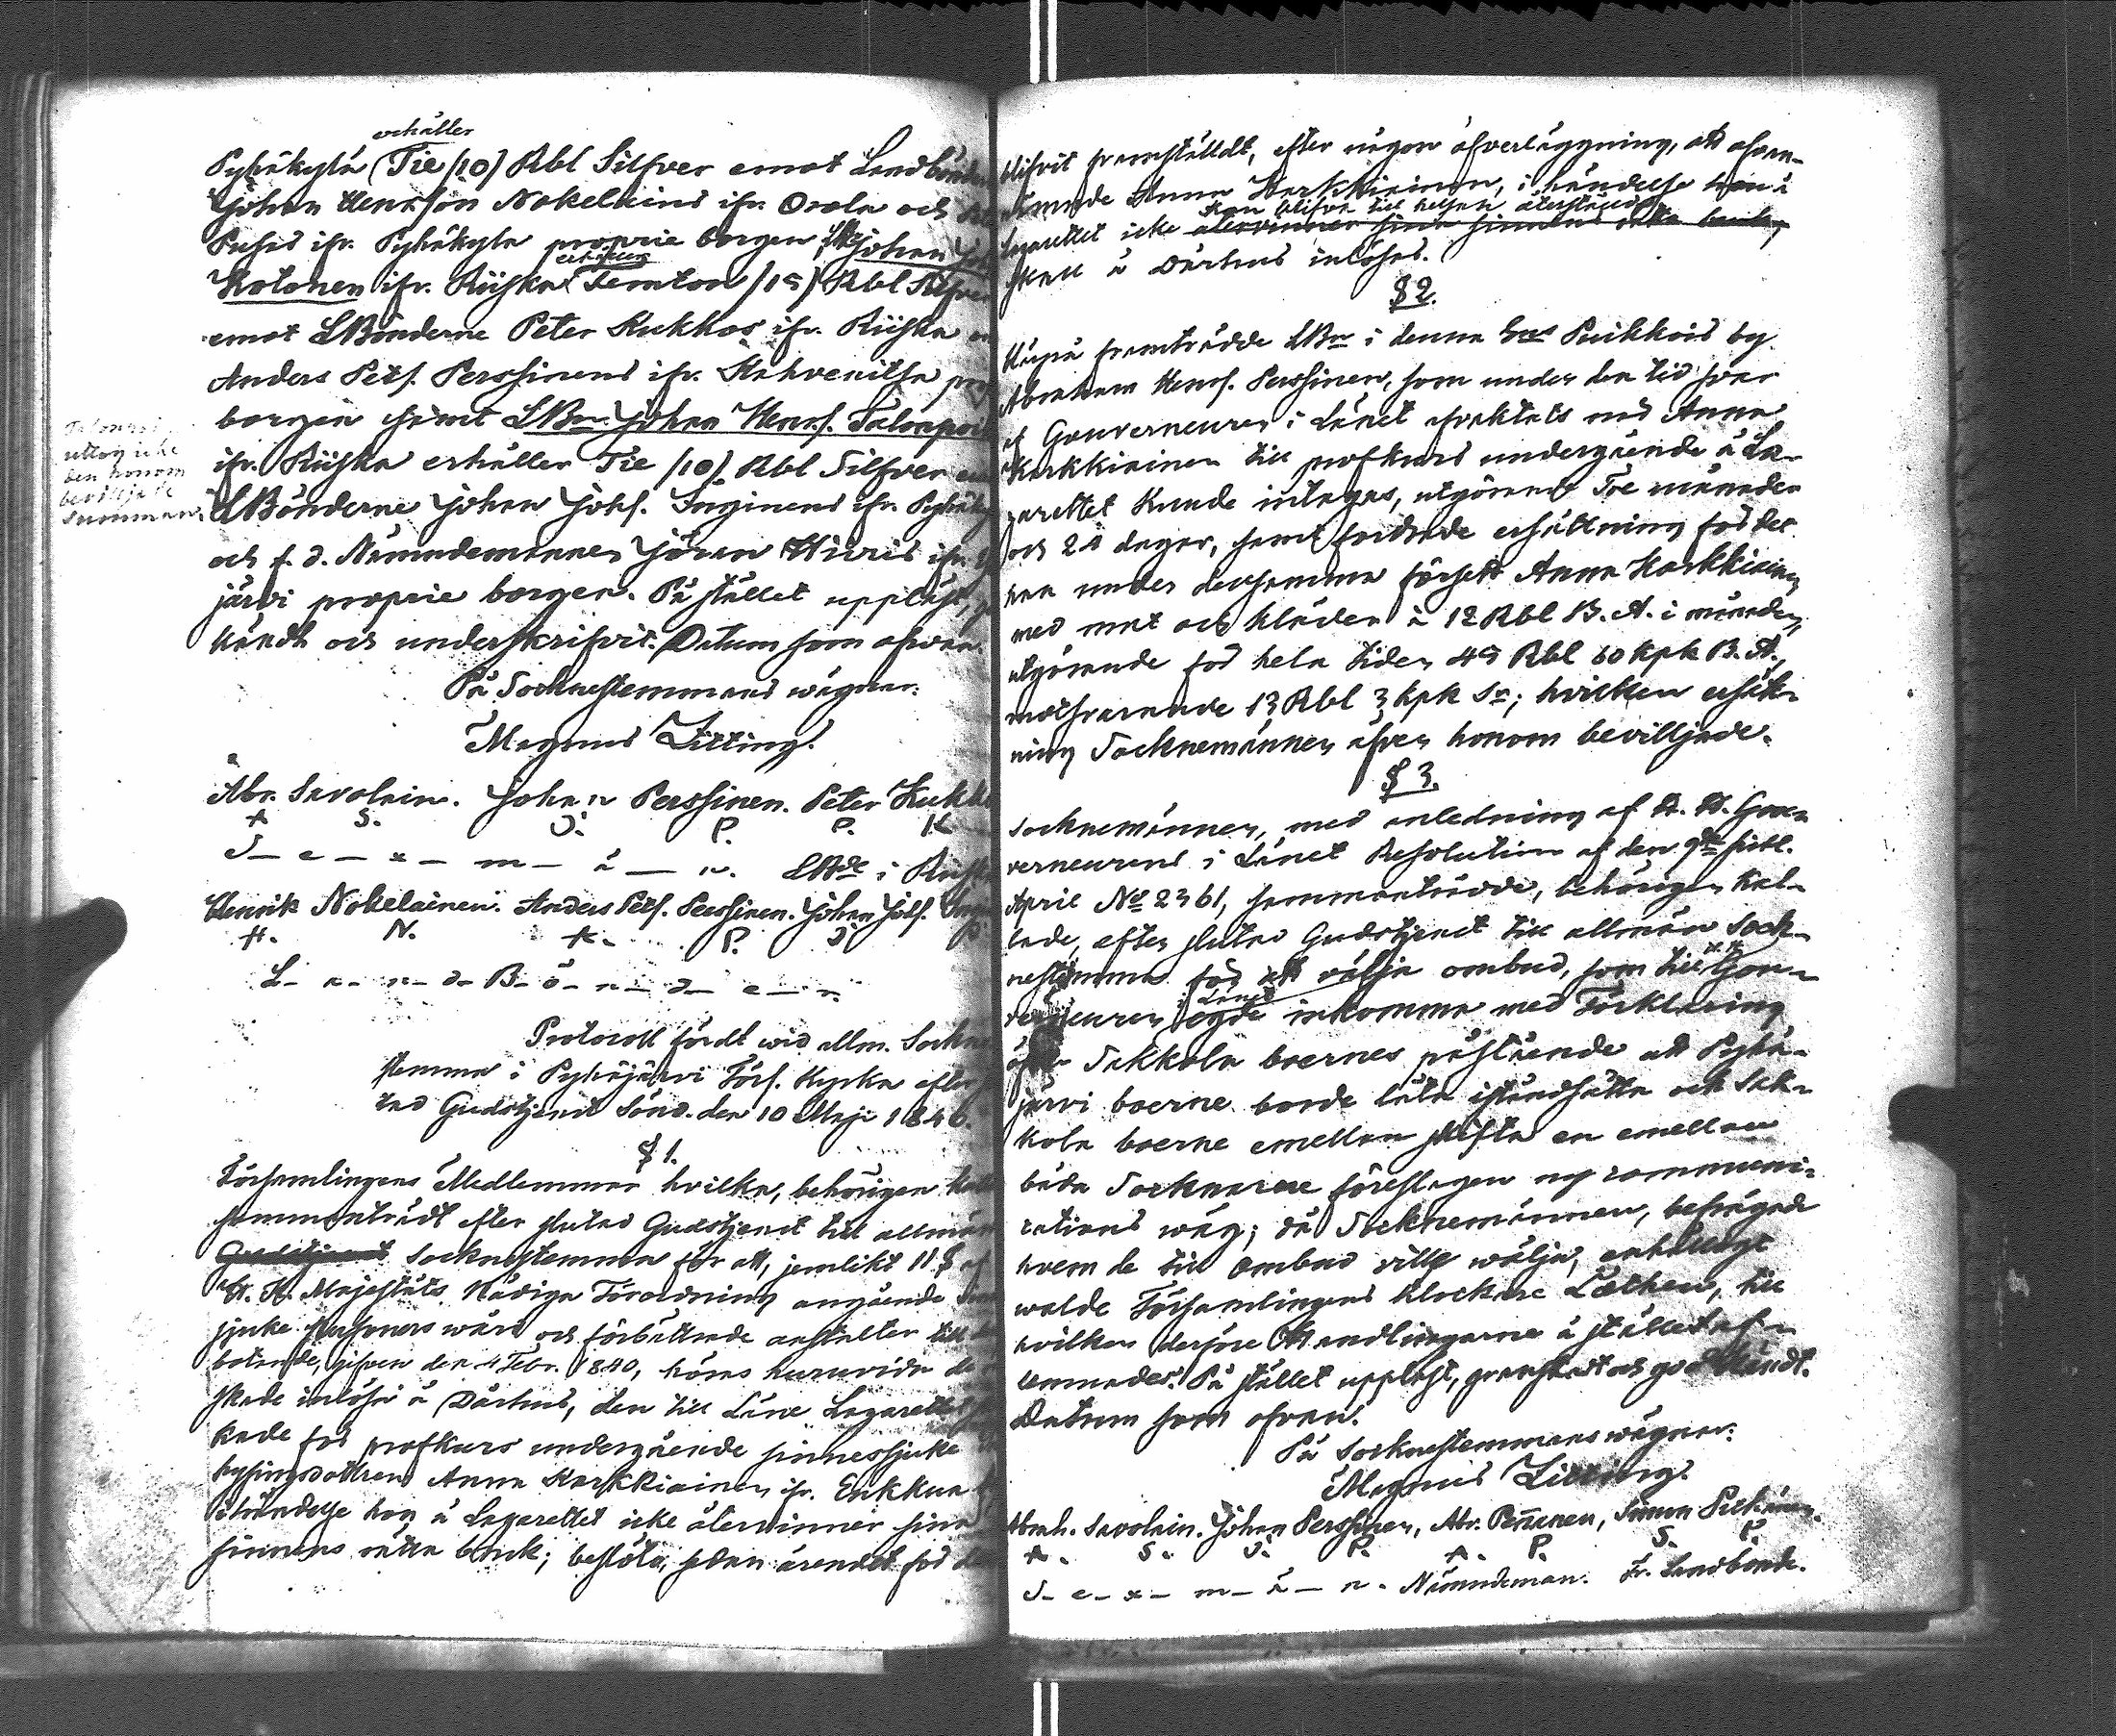 erhåller
Pyhäkylä Tie (10) Rbl Silfver emot Landbönderne
Johan Henrsson Nokelains ifr. Orola och
Pusas ifr. Pyhäkylä proprie borgen, Johan
erhåller
Kotonen ifr. Riiska Femton (15) Rbl Silfver
emot LBönderne Peter Kukkos ifr. Riiska
Anders Pets. Perssinens ifr. Kahvenitsa
borgen samt LBn. Johan Henrs. Talonpoik
ifr. Riiska erhåller Tie (10) Rbl Silfver
LBönderne Johan Johs. Inginens ifr. Pyhäkylä
och f. d. Nämndemannen Jöran Hirvis ifr.
järvi proprie borgen. På stället uppläst,
kändt och underskrifvit. Datum som ofvan.
På Sockenstemmans wägnar:
Magnus Zitting.
uttog icke
den honom
beviljade
summan.
Abr. Savolain. Johan Perssinen. Peter Kukk
A S. J. P. P. K
S – e – x – m – ä – n. LBde i Riiska
Henrik Nokelainen. Anders Pets. Perssinen. Johan Johs.
H. N. A. P. J.
L – a – n – d – B – ö – n – d – e – r.
Protocoll fördt wid allm. Sockne
stemma i Pyhäjärvi Förs. Kyrka efter
tad Gudstjenst Sönd. den 10 Maji 1846.
§ 1.
Församlingens Medlemmar hvilka, behörigen
sammanträdt efter slutad Gudstjenst till allmän
Gudstjenst Socknestemma för att, jemlikt 11 § af
H. K. Majestäts Nådiga Förordning angående
sjuke personers wård och förbättrade anstalter till
botande, gifven den 4 Febr. 1840, höras huruvida de
skade inlösa å Dårhus, den till Läne Lazarettet
kade för profkurs undergående sinnessjuke
hysingsdottren Anna Karkkiainen ifr. Enkkua
i händelse hon å Lazarettet icke återvinner sina
sinnens rätta bruk; beslöto, sedan ärendet för
blifvit framstäldt, efter någon öfverläggning, att ofvan-
nämnde Anna Karkkiainen, i händelse hon å
kan blifva till helsan återställd
Lazarettet icke återvinner sina sinnens rätta bruk,
skall å Dårhus inlösas.
§ 2.
Uppå framträdde LBn i denna Sns Puikkois by
Abraham Henrs. Perssinen, som under den tid svar
af Gouverneuren i Länet afvaktats när Anna
Karkkiainen till profkurs undergående å La-
zarettet kunde intagas, utgörande Tre månader
och 24 dagar, samt fordrade ersättning för det
han under densamma försett Anna Karkkiainen
med mat och kläder à 12 Rbl B. A. i månaden,
utgörande för hela tiden 45 Rbl 60 kpk B. A.
motsvarande 13 Rbl 3 kpk Sr; hvilken ersätt-
ning Socknemännen äfven honom bevilljade.
§ 3.
Socknemännen, med anledning af H. H. Gou-
verneurens i Länet Resolution af den 9de sistl.
April No 2361, sammanträdde, behörigen kal-
lade, efter slutad Gudstjenst till allmän Sock-
nestemma för att välja ombud, som till H. H. Gou-
verneuren i Länet egde inkomma med Förklaring
öfver Sakkola boernes påstående att Pyhä-
järvi boerne borde låta iståndsätta och Sak-
kola boerne emellan skifta en emellan
båda Socknarne föreslagen ny communi-
cations wäg; då Socknemännen, befrågade
hvem de till Ombud ville wälja, enhälligt
walde Församlingens klockare Læthen, till
hvilken derföre Handlingarne å stället af-
lemnades. På stället uppläst, granskadt och godkändt.
Datum som ofvan.
På Socknestemmans wägnar:
Magnus Zitting.
Abrah. Savolain. Johan Perssinen, Abr. Pennanen, Simon Pitkänen.
A. S. J. P. A. P. S. P.
S – e – x – m – ä – n. Nämndeman. Fr. Landbonde.